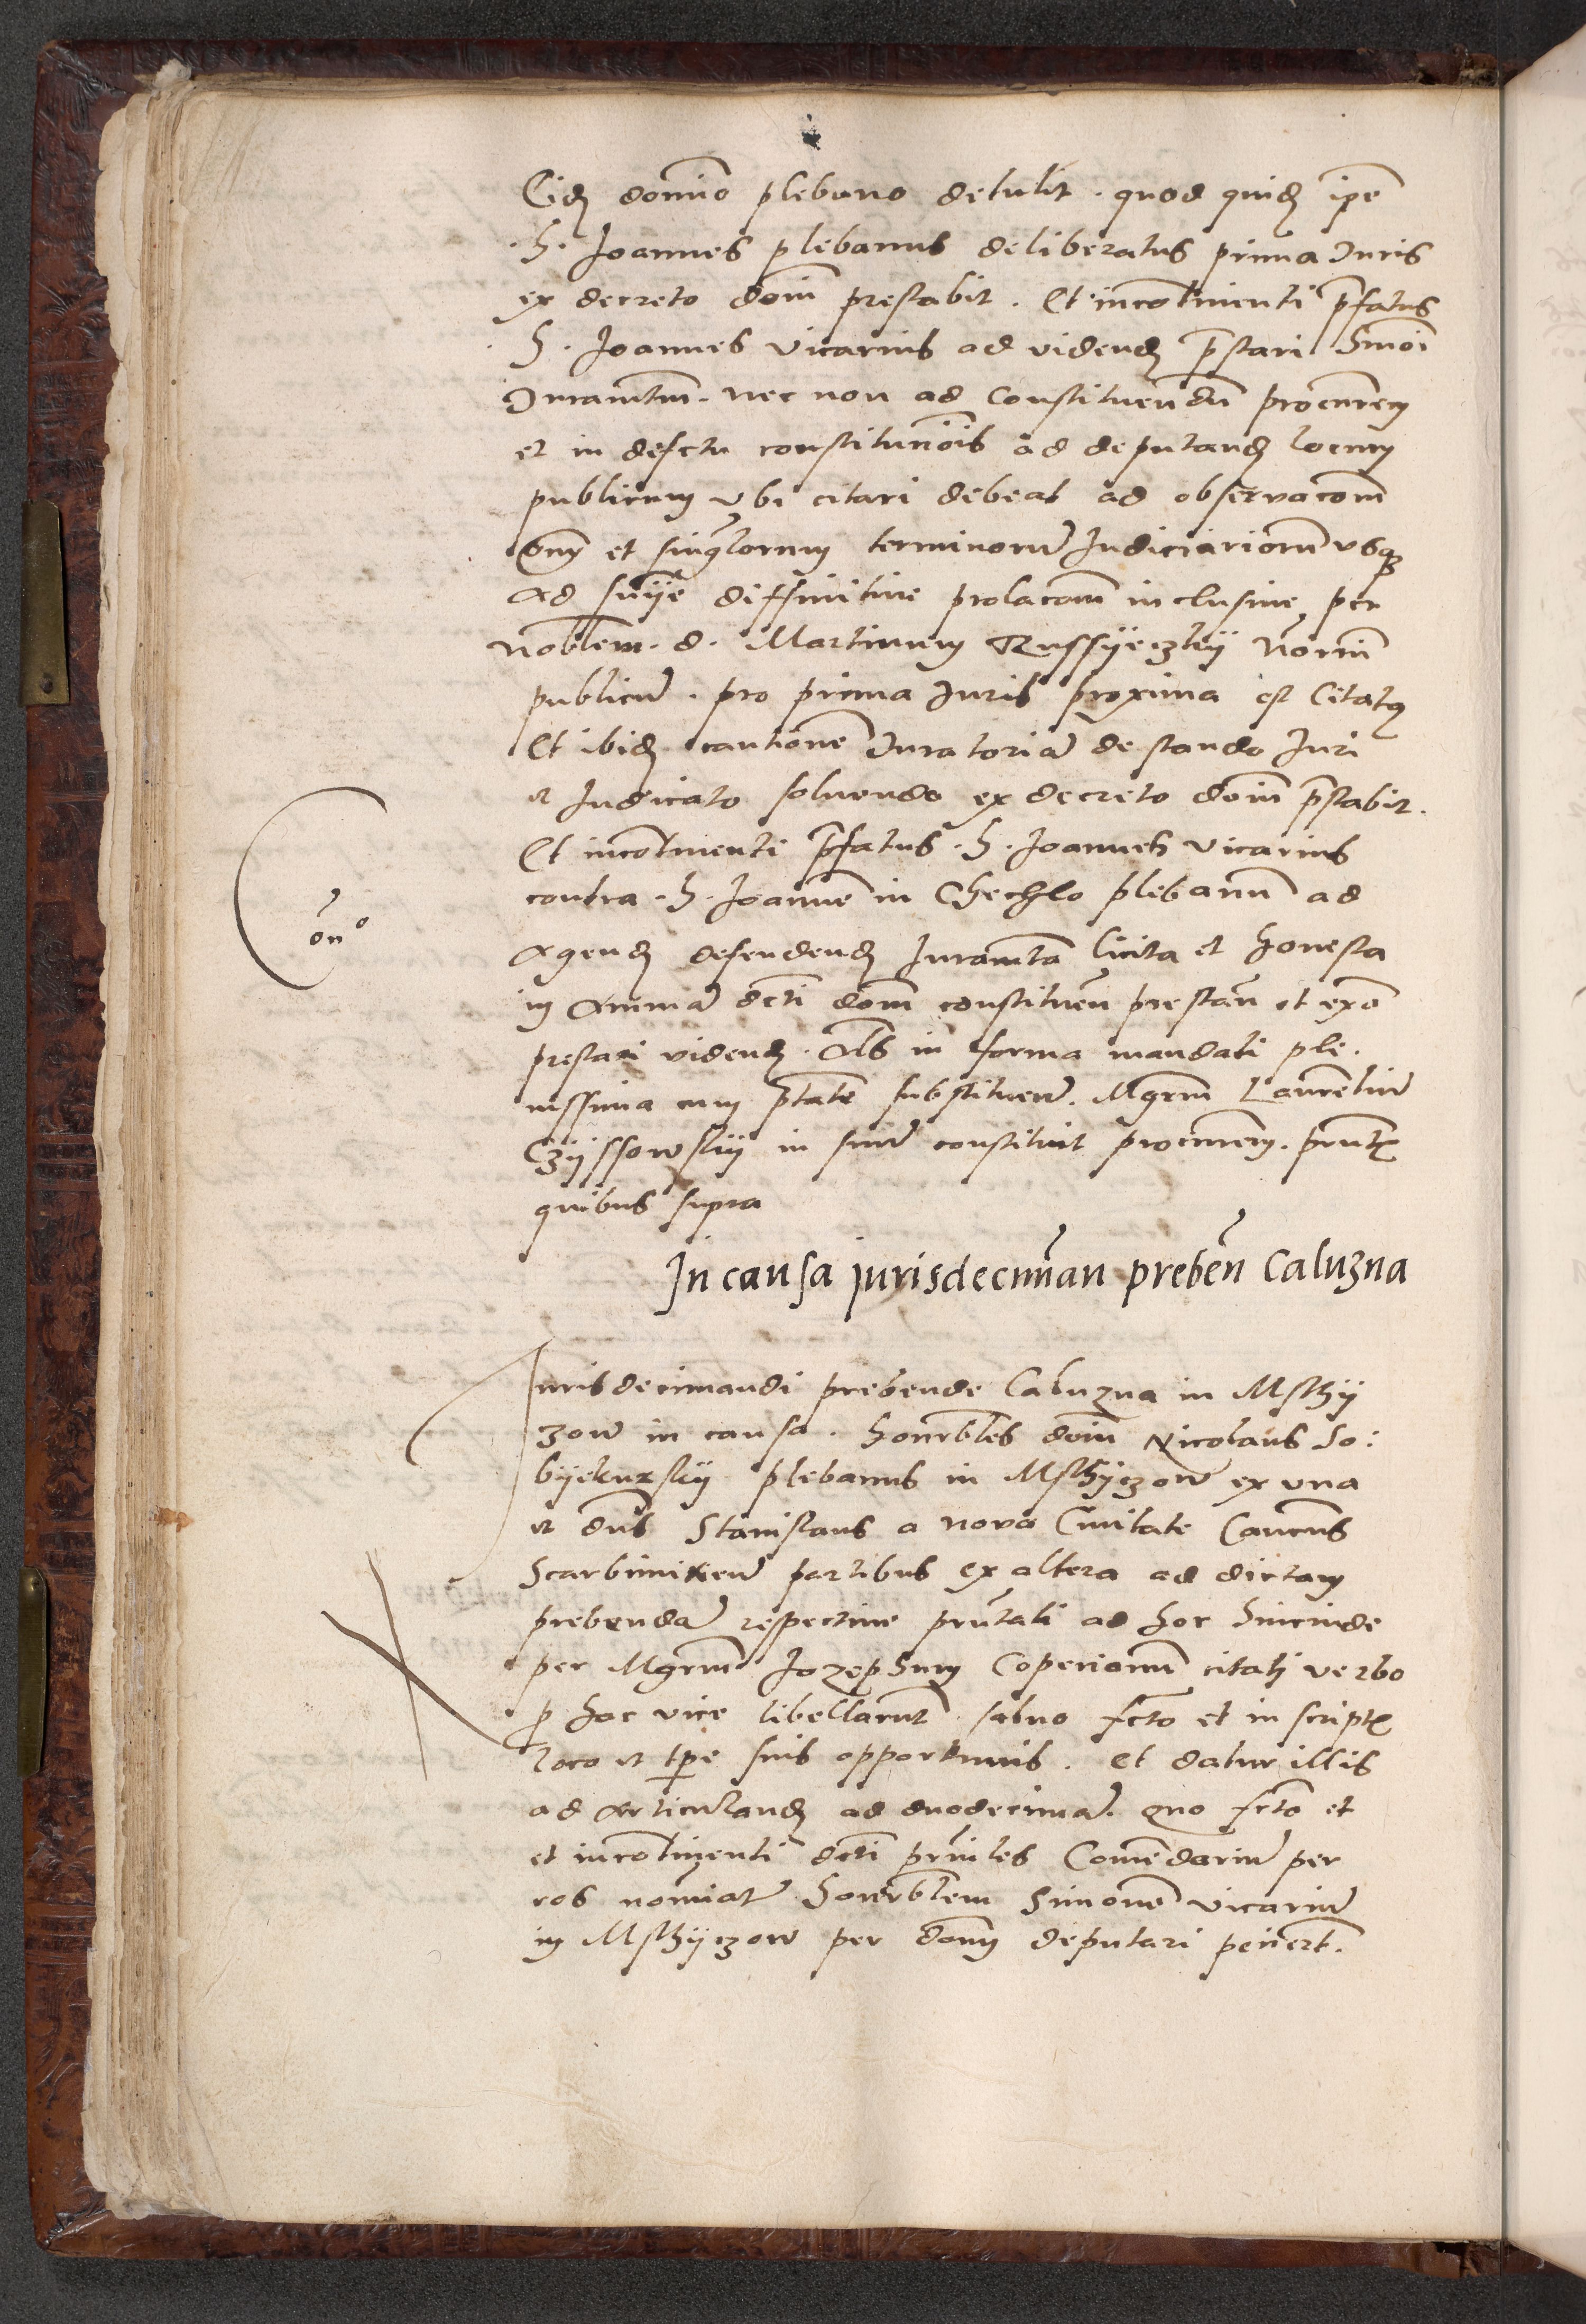 Eidem domino plebano detulit . quod quidem ipse
. H . Joannes plebanus deliberatus prima Juris
ex decreto domini prestabit . Et incontinenti prefatus
. H . Joannes vicarius ad videndum prestari
Juramentum . nec non ad constituendum procuratorem
et in defectu constitutionis ad deputandum locum
publicum vbi citari debeat ad observacionem
omnium et singulorum terminorum Judiciariorum vsque
ad sententie diffinitive prolacionem inclusive per
nobilem . d . Martinum Notarium
publicum . pro prima Juris proxima est Citatus
Et ibidem cautionem Juratoriam de stando Juri
et Judicato solvendo ex decreto domini prestabit .
Et incontinenti prefatus . H . Joannes vicarius
contra . H . Joannem in Chechlo plebanum ad
agendum defendendum Juramenta licita et honesta
in animam dicti domini constituentis prestandum et
prestari videndum . Alias in forma mandati ple .
nissima cum potestate substituendi . Magistrum Laurentium
Czyssowskij in suum constituit procuratorem . presentibus
quibus supra
In causa jurisdecimandi prebende Caluzna
Jurisdecimandi prebende Caluzna in Msthy
zow in causa . honorabiles domini Nicolaus So :
byekurskij plebanus in Msthyczow ex vna
et dominus Stanislaus a nova Civitate Canonicus
Scarbimiriensis partibus ex altera ad dictam
prebendam respective presentati ad hoc hincinde
per Magistrum Jozephum citati verbo
pro hac vice libellarunt . salvo facto et in scriptis
loco et tempore suis opportunis . et datur illis
ad articulandum ad duodecimam . Quo facto et
et incontinenti dicti principales Comendarium per
eos nominatum honorabilem Simonem vicarium
in Msthyczow per dominum deputari petierunt .